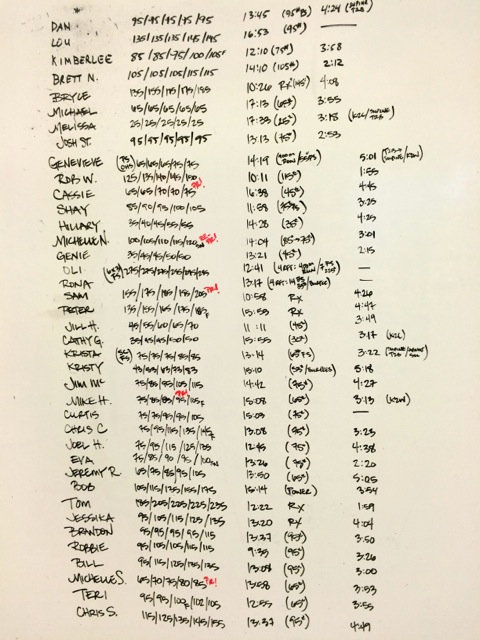 DAN 95/95/95/75/95 13:45 (95#) 4:24
LOU 135/135/135/145/145 16:53 (95#) —
KIMBERLEE 85/85/75/100/105F 12:10 (75#) 3:58
BRETT N. 105/105/105/115/115 14:10 (105#) 2:12
BRYCE 135/155/175/175/185 10:26 RX 4:08
MICHAEL 65/65/65/65/65 17:13 (65#) 3:55
MELISSA 25/25/25/25/25 17:33 3:18
JOSH ST. 95/95/95/95/95 13:13 (75#) 2:53
GENEVIEVE 65/65/65/75/75 14:19 5:01
ROB W. 125/135/140/145/150 PR! 10:11 (115#) 1:55
CASSIE 65/65/70/70/75 16:38 (45#) 4:45
SHAY 85/90/95/100/105 11:58 3:25
HILLARY 35/40/45/55/55 14:28 (35#) 4:25
MICHELLE N. 100/105/110/115/120 PR! 14:04 (85→75) 3:01
GENIE 35/45/45/50/50 13:21 (45#) 2:15
OLI 12:41 —
RONA 13:17 —
SAM 155/175/185/195/205 PR! 10:58 RX 4:26
PETER 135/155/165/175/185F 15:55 RX 4:47
JILL H. 45/55/60/65/70 11:11 (45#) 3:49
CATHY G. 35/45/45/50/50 15:55 (30#) 3:17
KRISTA 75/75/75/85/85 13:14 3:22
KRISTY 15:10 5:18
JIM MC 75/85/95/105/115 14:42 (95#) 4:27
MIKE H. 75/85/85/95/105F PR! 15:08 (65#) 3:13
CURTIS 75/75/95/95/105 15:03 (75#) —
CHRIS C 75/95/115/135/145F 13:08 (95#) 3:23
JOEL H. 75/95/115/125/135 12:45 (75#) 4:38
EVA 75/85/90/95/100 13:26 (75#) 2:20
JEREMY R. 65/75/85/95/105 13:50 (65#) 5:05
BOB 105/115/135/155/175 15:14 3:54
TOM 185/205/225/225/235 12:22 RX 1:59
JESSIKA 95/105/115/125/135 13:20 RX 4:04
BRANDON 95/95/95/95/115 13:37 (95#) 3:50
ROBBIE 95/105/105/115/115 9:35 (95#) 3:26
BILL 95/115/125/135/135 13:08 (95#) 3:00
MICHELLE S. 65/70/75/80/85 PR! 13:58 (65#) 3:53
TERI 95/95/100F/102/105 12:55 (65#) 3:55
CHRIS S. 115/125/135/145/155 13:37 (95#) 4:49